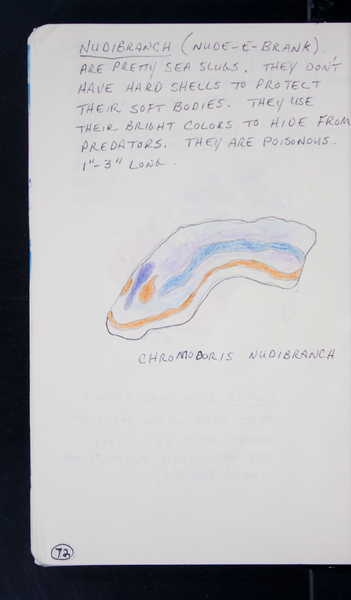 NUDIBRANCH (NUDE-E-BRANK).
ARE PRETTY SEA SLUGS. THEY DON'T
HAVE HARD SHELLS TO PROTECT
THEIR SOFT BODIES. THEY USE
THEIR BRIGHT COLORS TO HIDE FROM
PREDATORS. THEY ARE POISONOUS.
1"-3" LONG.
CHROMODORIS NUDIBRANCH
72